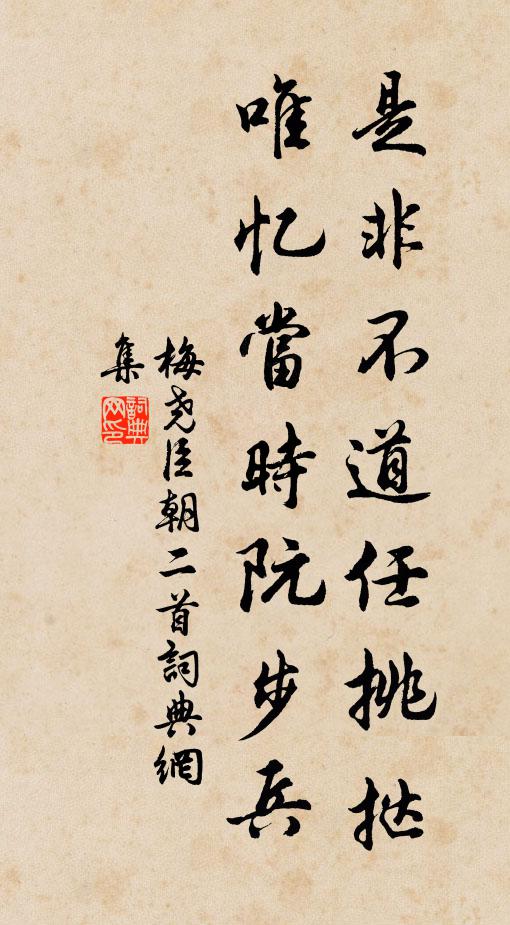 是非不道任挑挞
唯忆當時阮步兵
梅尧臣朝二首詞典網
集
詞典网印